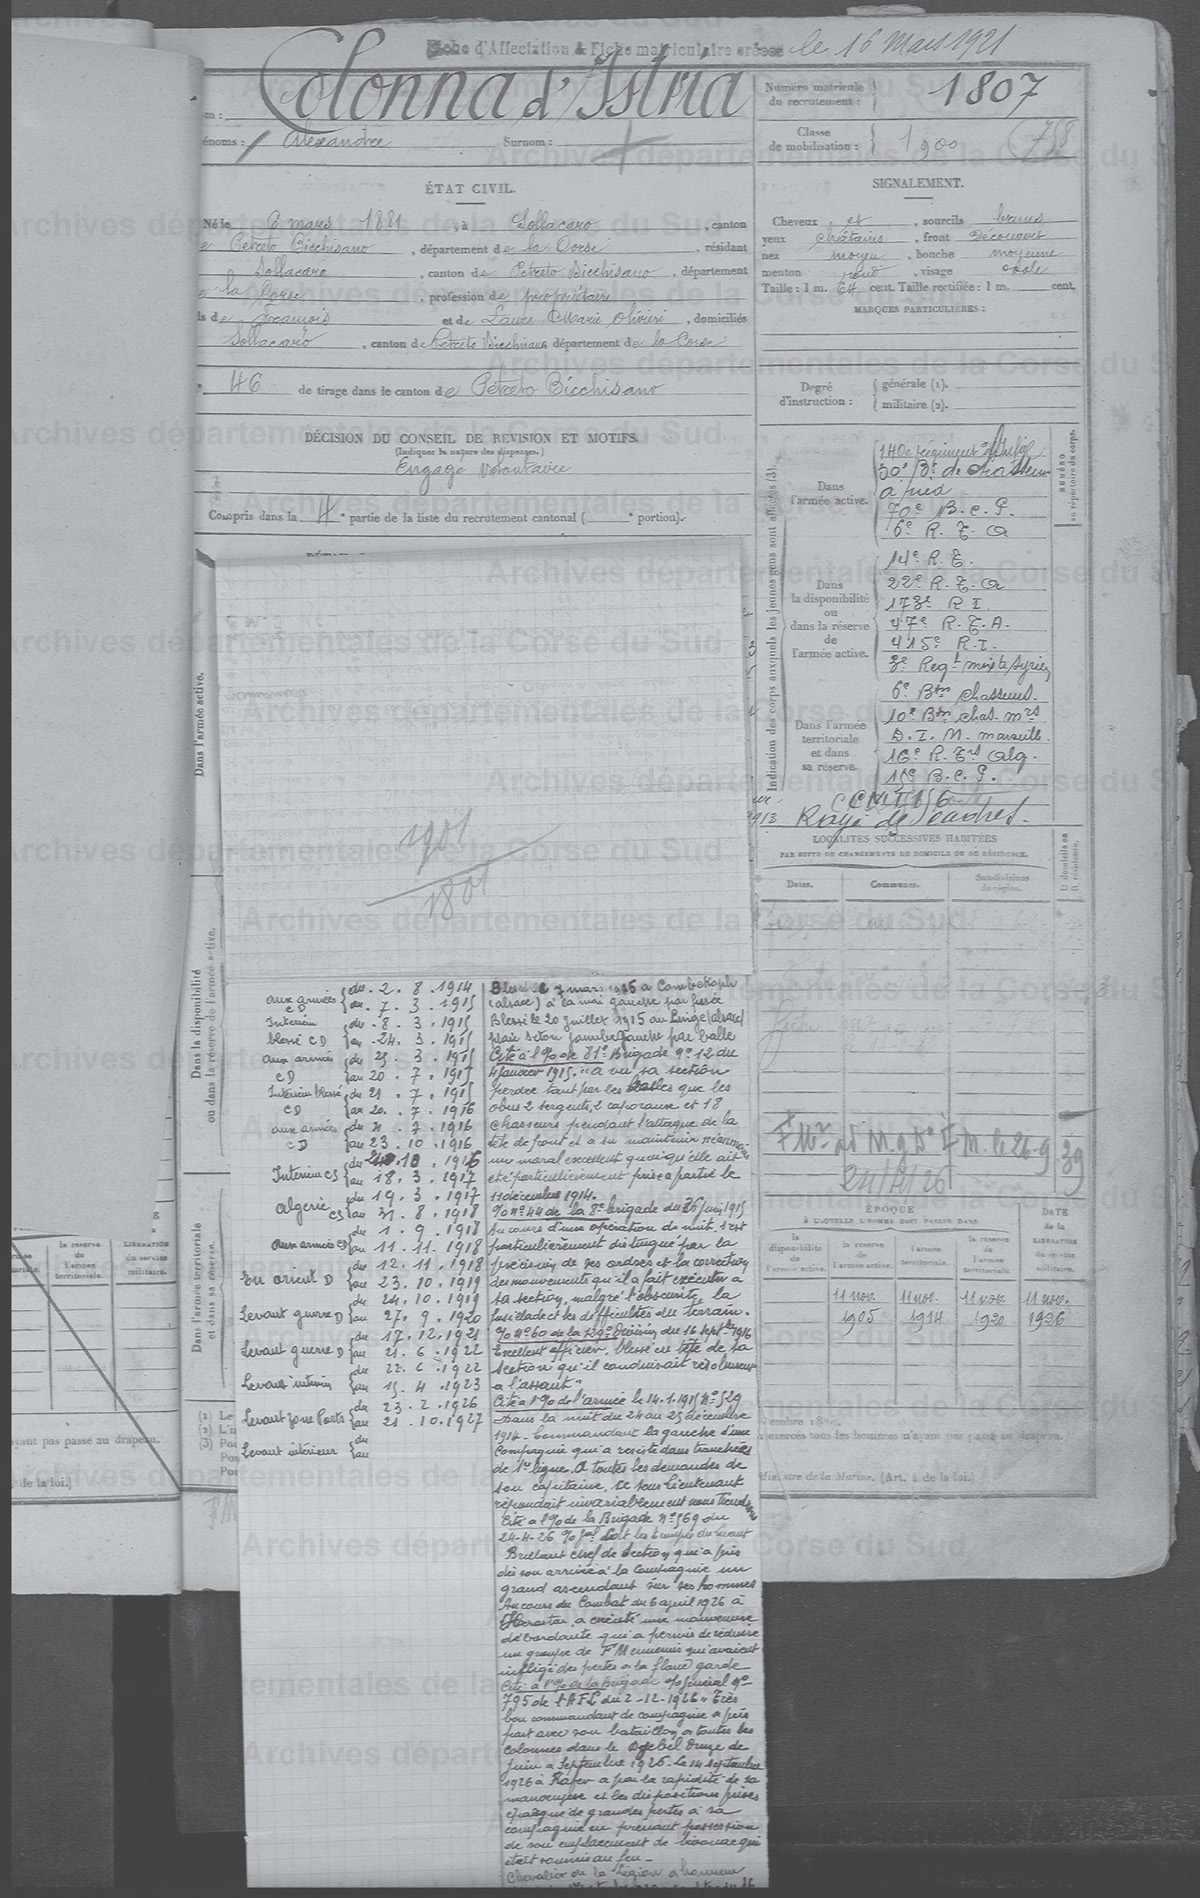 Fiche d'Affectation & Fiche matriculaire créées le 16 Mars 1921
Colonna d'Istria
Prénoms : Alexandre Surnom :
Numéro matricule du recrutement : 1807
Classe de mobilisation : 1900
758
ÉTAT CIVIL.
Né le 6 mars 1881, à Sollacaro, canton
de Petreto Bicchisano, département de la Corse, résidant
Sollacaro, canton de Petreto Bicchisano, département
de la Corse, profession de propriétaire
fils de François et de Laure Marie Olivieri, domiciliés
Sollacaro, canton de Petreto Bicchisano département de la Corse
N° 46 de tirage dans le canton de Petreto Bicchisano
DÉCISION DU CONSEIL DE REVISION ET MOTIFS.
(Indiquer la nature des dispenses.)
Engagé volontaire
Compris dans la 4e partie de la liste du recrutement cantonal ( e portion).
SIGNALEMENT.
Cheveux et , sourcils bruns
yeux châtains , front découvert
nez moyen , bouche moyenne
menton rond , visage ovale
Taille : 1 m. 64 cent. Taille rectifiée : 1 m. cent.
MARQUES PARTICULIÈRES :
Degré d'instruction : générale (1). militaire (2).
Indication des corps auxquels les jeunes gens sont affectés (3).
NUMÉRO au répertoire du corps.
Dans l'armée active.
140e régiment d'Infie
30e Bn de chasseurs
à pied
70e B.C.P.
6e R.T.A
Dans la disponibilité ou dans la réserve de l'armée active.
14e R.T.
22e R.T.A
173e R I.
47e R.T.A.
415e R.I.
3e Regt mixte Syrien
Dans l'armée territoriale et dans sa réserve.
6e Btn chasseurs.
10e Btn chas. mrs
D.I.M. Marseille.
16e R. Trs Alg.
15e B.C.P.
Rayé des Cadres.
LOCALITÉS SUCCESSIVES HABITÉES
PAR SUITE DE CHANGEMENTS DE DOMICILE OU DE RÉSIDENCE.
Dates. Communes. Subdivisions de région. D domicile ou R résidence.
ÉPOQUE À LAQUELLE L'HOMME DOIT PASSER DANS
DATE de la LIBÉRATION du service militaire.
la disponibilité de l'armée active. la réserve de l'armée active. l'armée territoriale. la réserve de l'armée territoriale.
11 nov. 1905 11 nov. 1914 11 nov. 1920 11 nov. 1926
Dans l'armée active.
Dans la disponibilité ou dans la réserve de l'armée active.
Dans l'armée territoriale et dans sa réserve.
la réserve de l'armée territoriale. LIBÉRATION du service militaire.
1901
1807
aux armées CD du 2.8.1914 au 7.3.1915
Intérieur blessé CD du 8.3.1915 au 24.3.1915
aux armées CD du 25.3.1915 au 20.7.1915
Intérieur blessé CD du 21.7.1915 au 20.7.1916
aux armées CD du 21.7.1916 au 23.10.1916
Intérieur CS du 24.10.1916 au 18.3.1917
Algérie CS du 19.3.1917 au 31.8.1918
Aux armées CD du 1.9.1918 au 11.11.1918
En orient D du 12.11.1918 au 23.10.1919
Levant guerre D du 24.10.1919 au 27.9.1920
Levant guerre D du 17.12.1921 au 21.6.1922
Levant intérieur du 22.6.1922 au 15.4.1923
Levant zone Ports du 23.2.1926 au 21.10.1927
Levant intérieur du au
Blessé le 7 mars 1915 à
(alsace) à la main gauche par fusée
Blessé le 20 juillet 1915 au Linge (alsace)
plaie séton jambe gauche par balle
Cité à l'o/ de 81e Brigade no 12 du
4 janvier 1915. "a vu sa section
perdre tant par les balles que les
obus 2 sergents, 2 caporaux et 18
chasseurs pendant l'attaque de la
tête de pont et a su maintenir néanmoins
un moral excellent quoiqu'elle ait
été particulièrement prise à partie le
11 décembre 1914.
O/ no 44 de la 8e brigade du 26 juin 1915
Au cours d'une opération de nuit s'est
particulièrement distingué par la
précision de ses ordres et la correction
des mouvements qu'il a fait exécuter à
sa section, malgré l'obscurité, la
fusillade et les difficultés du terrain.
O/ no 60 de la 129e Division du 16 septbre 1916
Excellent officier, blessé en tête de sa
section qu'il conduisait résolument
à l'assaut"
Cité à l'o/ de l'armée le 14.1.1915 no 529
Dans la nuit du 24 au 25 décembre
1914. Commandant la gauche d'une
compagnie qui a résisté dans tranchées
de 1re ligne. A toutes les demandes de
son capitaine, ce sous lieutenant
répondait invariablement nous tiendrons
Cité à l'o/ de la Brigade no 569 du
24-4-26 o/ gal Cdt les troupes du Levant
Brillant chef de section qui a pris
dès son arrivée à la compagnie un
grand ascendant sur ses hommes
Au cours du Combat du 6 avril 1926 à
a exécuté une manoeuvre
débordante qui a permis de réduire
un groupe de F M ennemis qui avaient
infligé des pertes à la flanc garde
Cité à l'o/ de la brigade o/ général no
795 de l'A F L du 2-12-1926 "Très
bon commandant de compagnie a pris
part avec son bataillon à toutes les
colonnes dans le Djebel Druze de
juin à Septembre 1926. Le 14 septembre
1926 à a par la rapidité de sa
manoeuvre et les dispositions prises
épargné de grandes pertes à sa
compagnie en prenant possession
de son emplacement de bivouac qui
était soumis au feu -
Chevalier de la Légion d'honneur
ayant pas passé au drapeau.
de la loi.)
exercés tous les hommes n'ayant pas passé au drapeau.
Ministre de la Marine. (Art. 4 de la loi.)
Archives départementales de la Corse du Sud